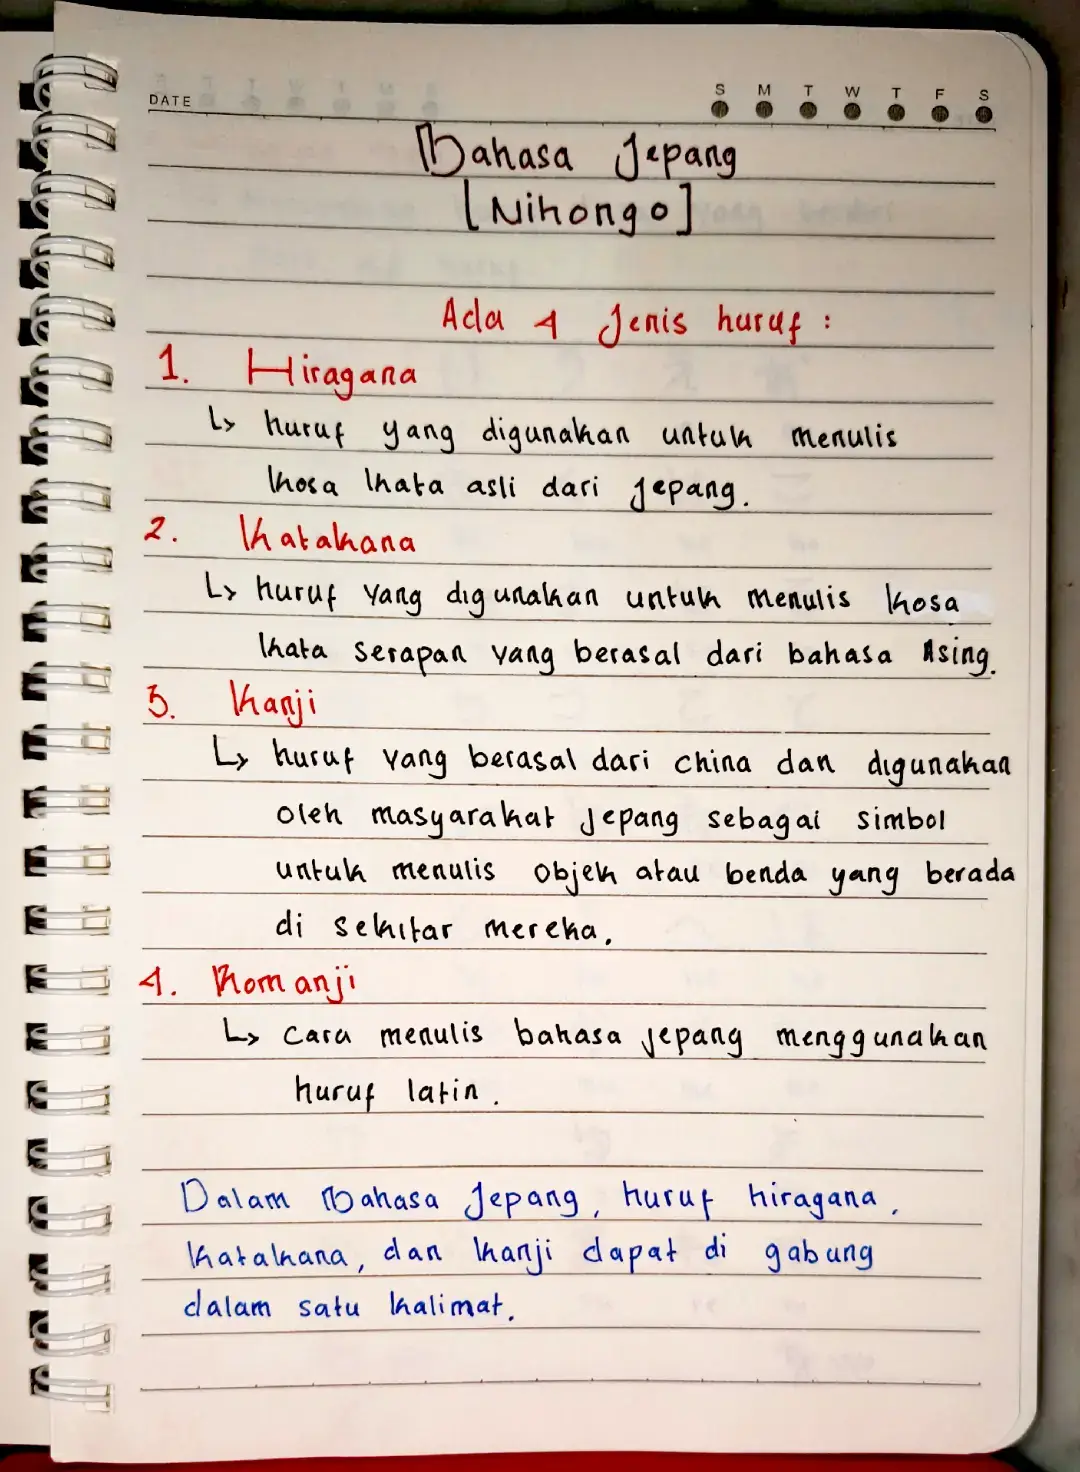 DATE
S M T W T F S
Bahasa Jepang
[Nihongo]
Ada 4 Jenis huruf :
1. Hiragana
↳ huruf yang digunakan untuk menulis
kosa kata asli dari Jepang.
2. Katakana
↳ huruf yang digunakan untuk menulis kosa
kata serapan yang berasal dari bahasa Asing.
3. Kanji
↳ huruf yang berasal dari china dan digunakan
oleh masyarakat Jepang sebagai simbol
untuk menulis objek atau benda yang berada
di sekitar mereka.
4. Romanji
↳ Cara menulis bahasa Jepang menggunakan
huruf latin.
Dalam Bahasa Jepang, huruf hiragana,
Katakana, dan kanji dapat di gabung
dalam satu kalimat.